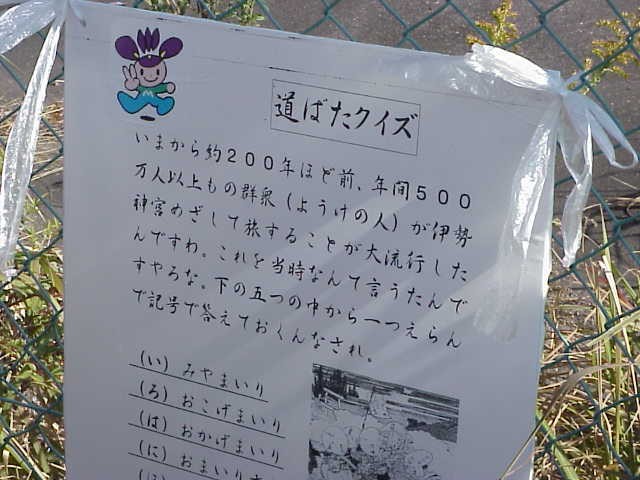 道ばたクイズ
いまから約200年ほど前、年間500
万人以上もの群衆（ようけの人）が伊勢
神宮めざして旅することが大流行した
んですわ。これを当時なんて言うたんで
すやろな。下の五つの中から一つえらん
で記号で答えておくんなされ。
(い) みやまいり
(ろ) おこげまいり
(は) おかげまいり
(に) おまいり